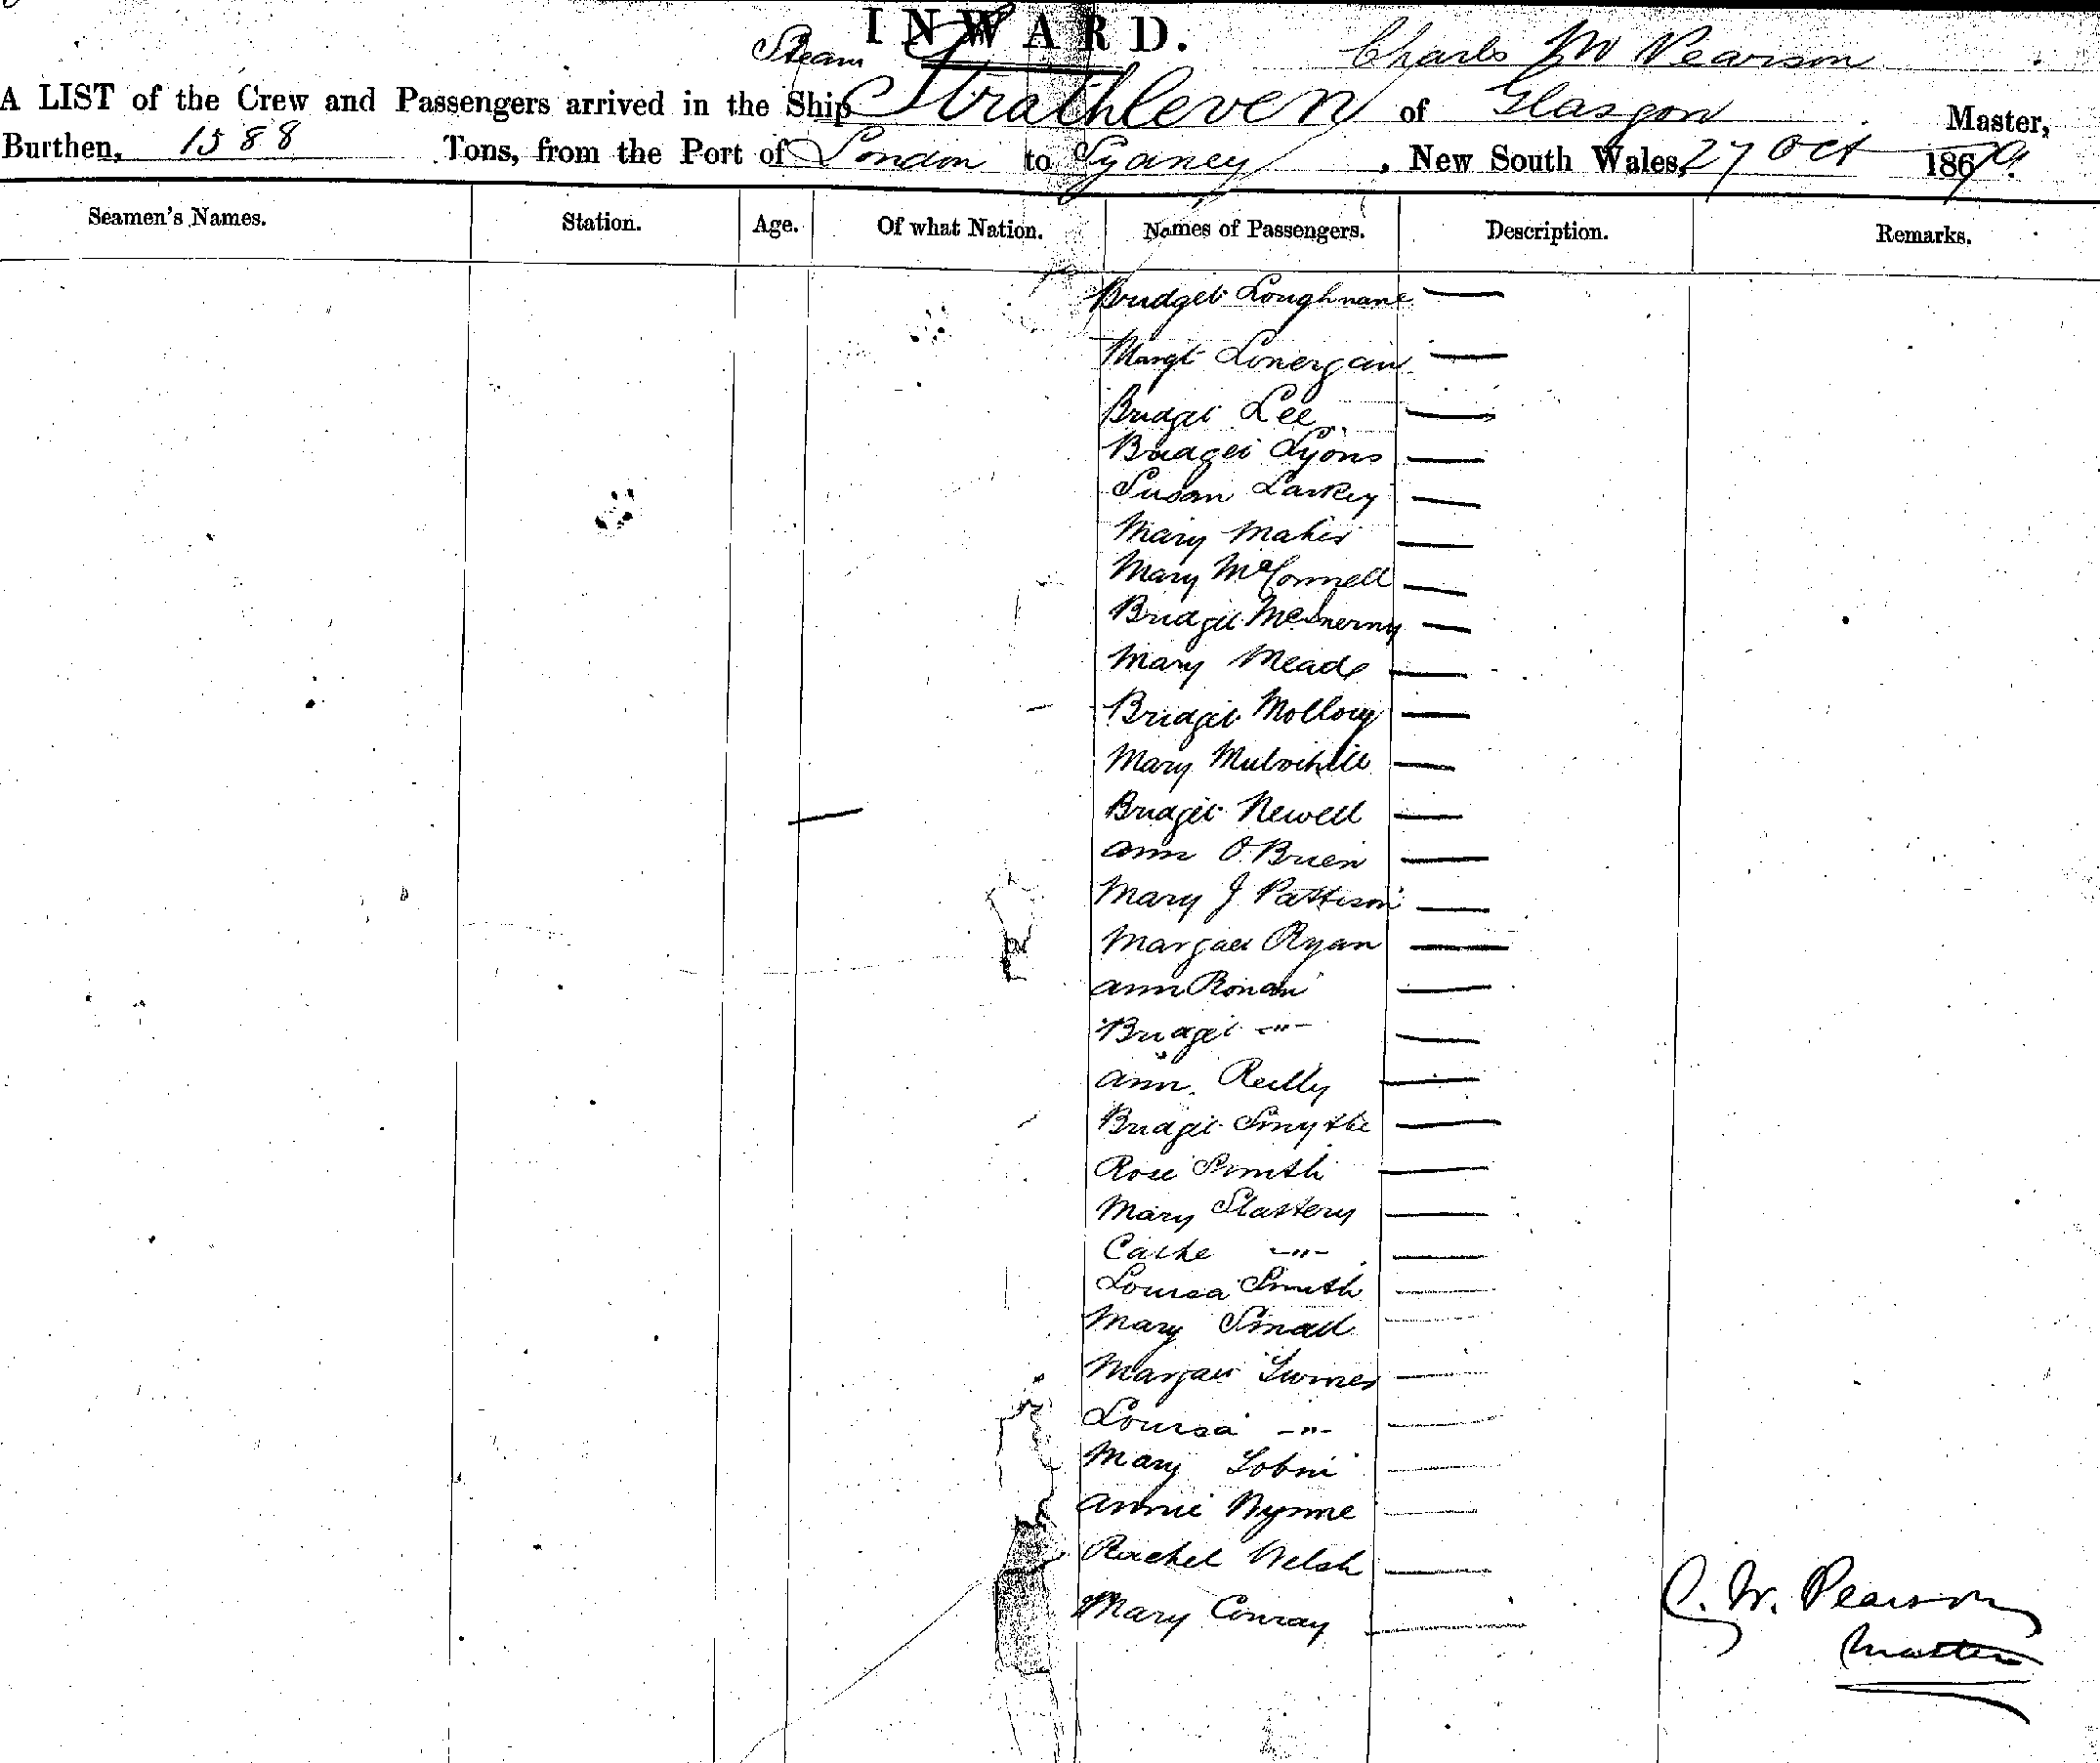 INWARD.
Steam Charles W Pearson
A LIST of the Crew and Passengers arrived in the Ship Strathleven of Glasgow Master,
Burthen, 1588 Tons, from the Port of London to Sydney, New South Wales, 27 Oct 1879.
Seamen's Names. Station. Age. Of what Nation. Names of Passengers. Description. Remarks.
Bridget Loughnane —
Margt Lonergan —
Bridget Lee —
Bridget Lyons —
Susan Larkey —
Mary Maher —
Mary McConnell —
Bridget McInerny —
Mary Meade —
Bridget Molloy —
Mary Mulvihill —
Bridget Newell —
Ann O'Brien —
Mary J Pattison —
Margaret Ryan —
Ann Ronan —
Bridget -"- —
Ann Reilly —
Bridget Smythe —
Rose Smith —
Mary Slattery —
Cathe -"- —
Louisa Smith —
Mary Small —
Margaret —
Louisa -"- —
Mary —
Annie Wynne —
Rachel Welsh —
Mary Conray —
C. W. Pearson
Master